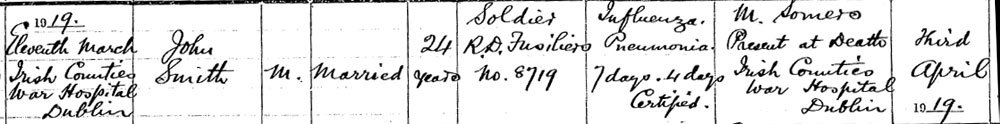 1919.
Eleventh March
Irish Counties
War Hospital
Dublin
John
Smith
M.
Married
24
years
Soldier
R.D. Fusiliers
No. 8719
Influenza.
Pneumonia.
7 days. 4 days
Certified.
M. Somers
Present at Death
Irish Counties
War Hospital
Dublin
Third
April
1919.